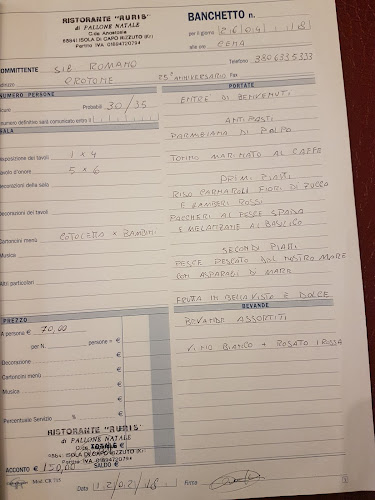 RISTORANTE "RURIS"
di PALLONE NATALE
C.da Anastasie
88841 ISOLA DI CAPO RIZZUTO (KR)
BANCHETTO n.
per il giorno 26/04/18
alle ore CENA
COMMITTENTE SIG ROMANO
Telefono 3806335333
CROTONE
25° ANNIVERSARIO Fax
NUMERO PERSONE
Probabili 30/35
Il numero definitivo sarà comunicato entro il
SALA
Disposizione dei tavoli 1 x 4
Tavolo d'onore 5 x 6
Decorazioni della sala
Decorazioni dei tavoli
Cartoncini menù COTOLETTA x BAMBINI
Musica
Altri particolari
PORTATE
ENTRÉ DI BENVENUTI
ANTIPASTI
PARMIGIANA DI POLPO
TONNO MARINATO AL CAFFÈ
PRIMI PIATTI
RISO CARNAROLI FIORI DI ZUCCA
E GAMBERI ROSSI
PACCHERI AL PESCE SPADA
E MELANZANE AL BASILICO
SECONDI PIATTI
PESCE PESCATO DAL NOSTRO MARE
CON ASPARAGI DI MARE
FRUTTA IN BELLA VISTA E DOLCE
BEVANDE
BEVANDE ASSORTITI
VINO BIANCO + ROSATO / ROSSO
PREZZO
A persona € 70,00
per N. persone = €
Decorazione €
Cartoncini menù €
Musica €
€
Percentuale Servizio €
RISTORANTE "RURIS"
di PALLONE NATALE
TOTALE €
88841 ISOLA DI CAPO RIZZUTO (KR)
ACCONTO € 150,00 SALDO €
Mod. CR 115
Data 12/02/18 Firma